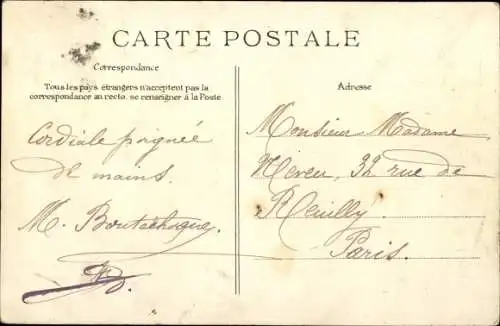 CARTE POSTALE
Correspondance
Tous les pays étrangers n'acceptent pas la
correspondance au recto. se renseigner à la Poste
Adresse
Cordiale poignée
de mains.
M.
Monsieur Madame
32 rue de
Reuilly
Paris.